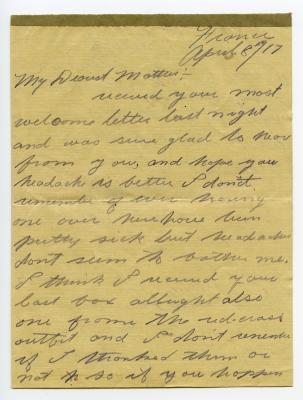 France
April 8th 17
My Dearest Mother:-
received your most
welcome letter last night
and was sure glad to hear
from you, and hope your
headack is better I don't
remember of ever having
one over here have been
pretty sick but headaches
don't seem to bother me.
I think I received your
last box allright also
one from the red cross
outfit and I don't remember
if I thanked them or
not so if you happen